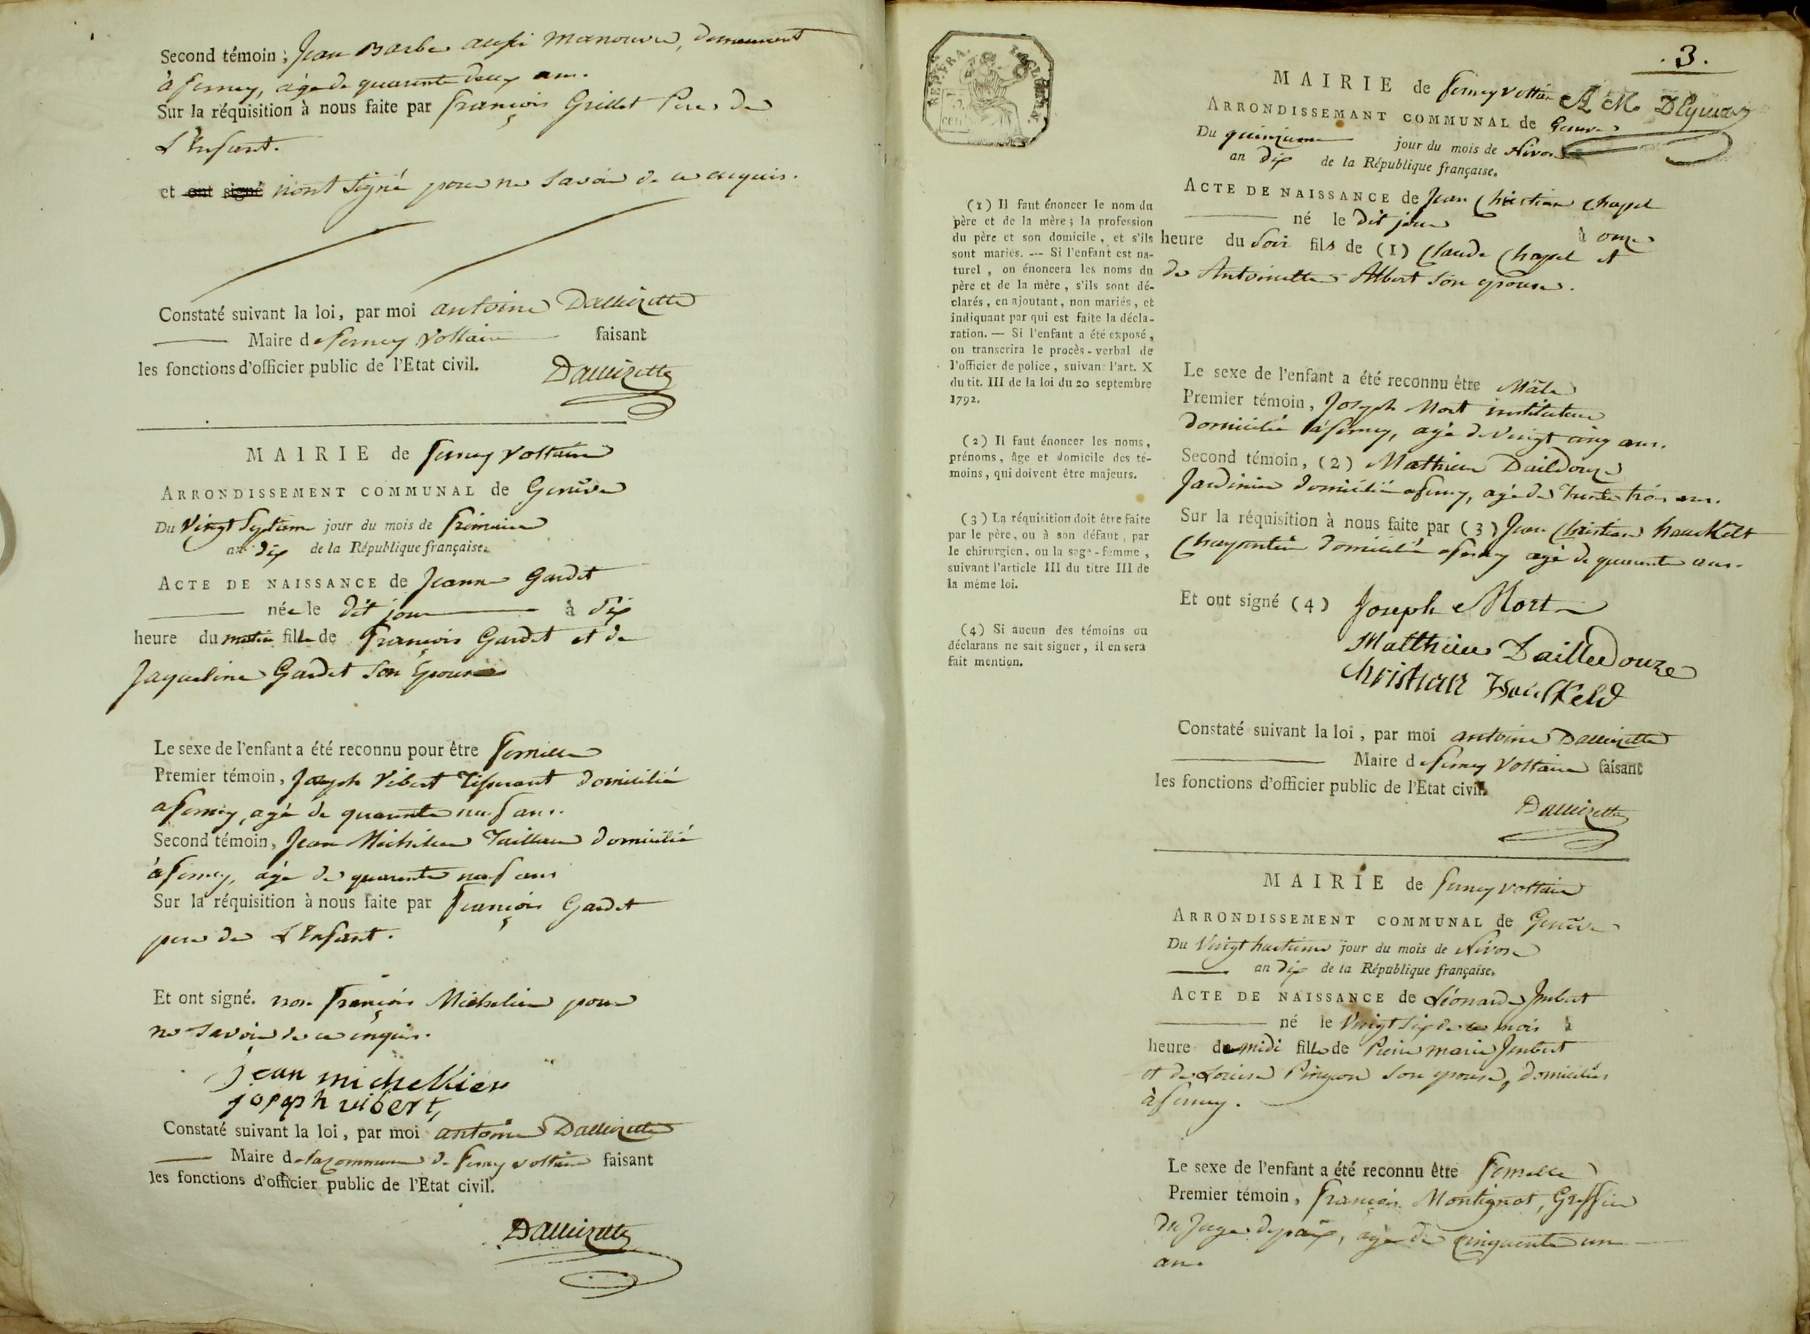 Second témoin ; Jean Barbe aussi manouvre, demeurant
à ferney, agé de quarente deux ans.
Sur la réquisition à nous faite par françois Grillet Pere de
L'Enfant.
et ont signé n'ont signé pour ne savoir de ce enquis.
Constaté suivant la loi, par moi antoine
Maire de ferney Voltaire faisant
les fonctions d'officier public de l'Etat civil.
MAIRIE de ferney Voltaire
ARRONDISSEMENT COMMUNAL de Genève
Du Vingt Septieme jour du mois de frimaire
an dix de la République française.
ACTE DE NAISSANCE de Jeanne Gardet
née le dit jour à dix
heure du matin fille de françois Gardet et de
Jaqueline Gardet son Epouse
Le sexe de l'enfant a été reconnu pour être femelle
Premier témoin, Joseph Vibert Tisserant domicilié
a ferney, agé de quarente neuf ans.
Second témoin, Jean Michelier Tailleur domicilié
à ferney, âgé de quarente neuf ans
Sur la réquisition à nous faite par françois Gardet
pere de L'Enfant.
Et ont signé. non françois Michelier pour
ne savoir de ce enquis.
jean michellier
joseph vibert,
Constaté suivant la loi, par moi antoine
Maire de la commune de ferney voltaire faisant
les fonctions d'officier public de l'Etat civil.
3.
MAIRIE de ferney voltaire
ARRONDISSEMANT COMMUNAL de Geneve
Du quinzieme jour du mois de Nivose
an dix de la République française.
ACTE DE NAISSANCE de Jean Christian Chapel
né le dit jour à onze
heure du soir fils de (1) Claude Chapel et
de Antoinette Albert son epouse.
(1) Il faut énoncer le nom du
père et de la mère ; la profession
du père et son domicile, et s'ils
sont mariés. — Si l'enfant est na-
turel, on énoncera les noms du
père et de la mère, s'ils sont dé-
clarés, en ajoutant, non mariés, et
indiquant par qui est faite la décla-
ration. — Si l'enfant a été exposé,
on transcrira le procès-verbal de
l'officier de police, suivant l'art. X
du tit. III de la loi du 20 septembre
1792.
(2) Il faut énoncer les noms,
prénoms, âge et domicile des té-
moins, qui doivent être majeurs.
(3) La réquisition doit être faite
par le père, ou à son défaut, par
le chirurgien, ou la sage-femme,
suivant l'article III du titre III de
la même loi.
(4) Si aucun des témoins ou
déclarans ne sait signer, il en sera
fait mention.
Le sexe de l'enfant a été reconnu être Mâle
Premier témoin, Joseph Mort instituteur
domicilié à ferney, agé de Vingt cinq ans.
Second témoin, (2) Mathieu Dailledouze
Jardinier domicilié a ferney, agé de Trente trois ans.
Sur la réquisition à nous faite par (3) Jean Christian
Charpentier domicilié a ferney agé de quarente ans.
Et ont signé (4) Joseph Mort
Matthieu Dailledouze
Christian
Constaté suivant la loi, par moi antoine
Maire de ferney Voltaire faisant
les fonctions d'officier public de l'Etat civil.
MAIRIE de ferney voltaire
ARRONDISSEMENT COMMUNAL de Genève
Du Vingt huitieme jour du mois de Nivose
an dix de la République française.
ACTE DE NAISSANCE de Léonarde Imbert
né le Vingt six de ce mois à
heure de midi fille de Pierre marie Imbert
et de Louise Pinçon son epouse, domiciliés
à ferney.
Le sexe de l'enfant a été reconnu être femelle
Premier témoin, françois Montignot, Greffier
du Juge de paix, agé de cinquente un
ans.